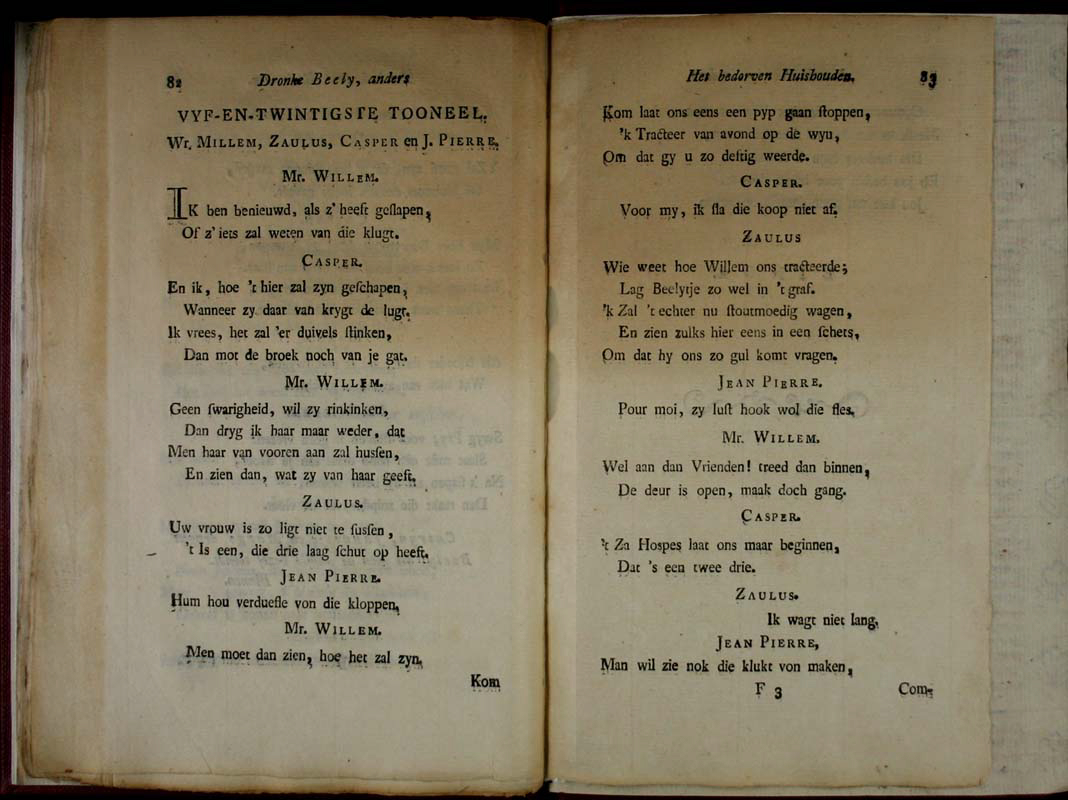 82 Dronke Beely, anders
VYF-EN-TWINTIGSTE TOONEEL.
Wr. MILLEM, ZAULUS, CASPER en J. PIERRE.
Mr. WILLEM.
IK ben benieuwd, als z' heeft geslapen,
Of z' iets zal weten van die klugt.
CASPER.
En ik, hoe 't hier zal zyn geschapen,
Wanneer zy daar van krygt de lugt.
Ik vrees, het zal 'er duivels stinken,
Dan mot de broek noch van je gat.
Mr. WILLEM.
Geen swarigheid, wil zy rinkinken,
Dan dryg ik haar maar weder, dat
Men haar van vooren aan zal hussen,
En zien dan, wat zy van haar geeft.
ZAULUS.
Uw vrouw is zo ligt niet te sussen,
't Is een, die drie laag schut op heeft.
JEAN PIERRE.
Hum hou verduefle von die kloppen,
Mr. WILLEM.
Men moet dan zien, hoe het zal zyn.
Kom
Het bedorven Huishouden. 83
Kom laat ons eens een pyp gaan stoppen,
'k Tracteer van avond op de wyn,
Om dat gy u zo deftig weerde.
CASPER.
Voor my, ik sla die koop niet af.
ZAULUS
Wie weet hoe Willem ons tracteerde;
Lag Beelytje zo wel in 't graf.
'k Zal 't echter nu stoutmoedig wagen,
En zien zulks hier eens in een schets,
Om dat hy ons zo gul komt vragen.
JEAN PIERRE.
Pour moi, zy lust hook wol die fles.
Mr. WILLEM.
Wel aan dan Vrienden! treed dan binnen,
De deur is open, maak doch gang.
CASPER.
't Za Hospes laat ons maar beginnen,
Dat 's een twee drie.
ZAULUS.
Ik wagt niet lang.
JEAN PIERRE,
Man wil zie nok die klukt von maken,
F 3 Com-